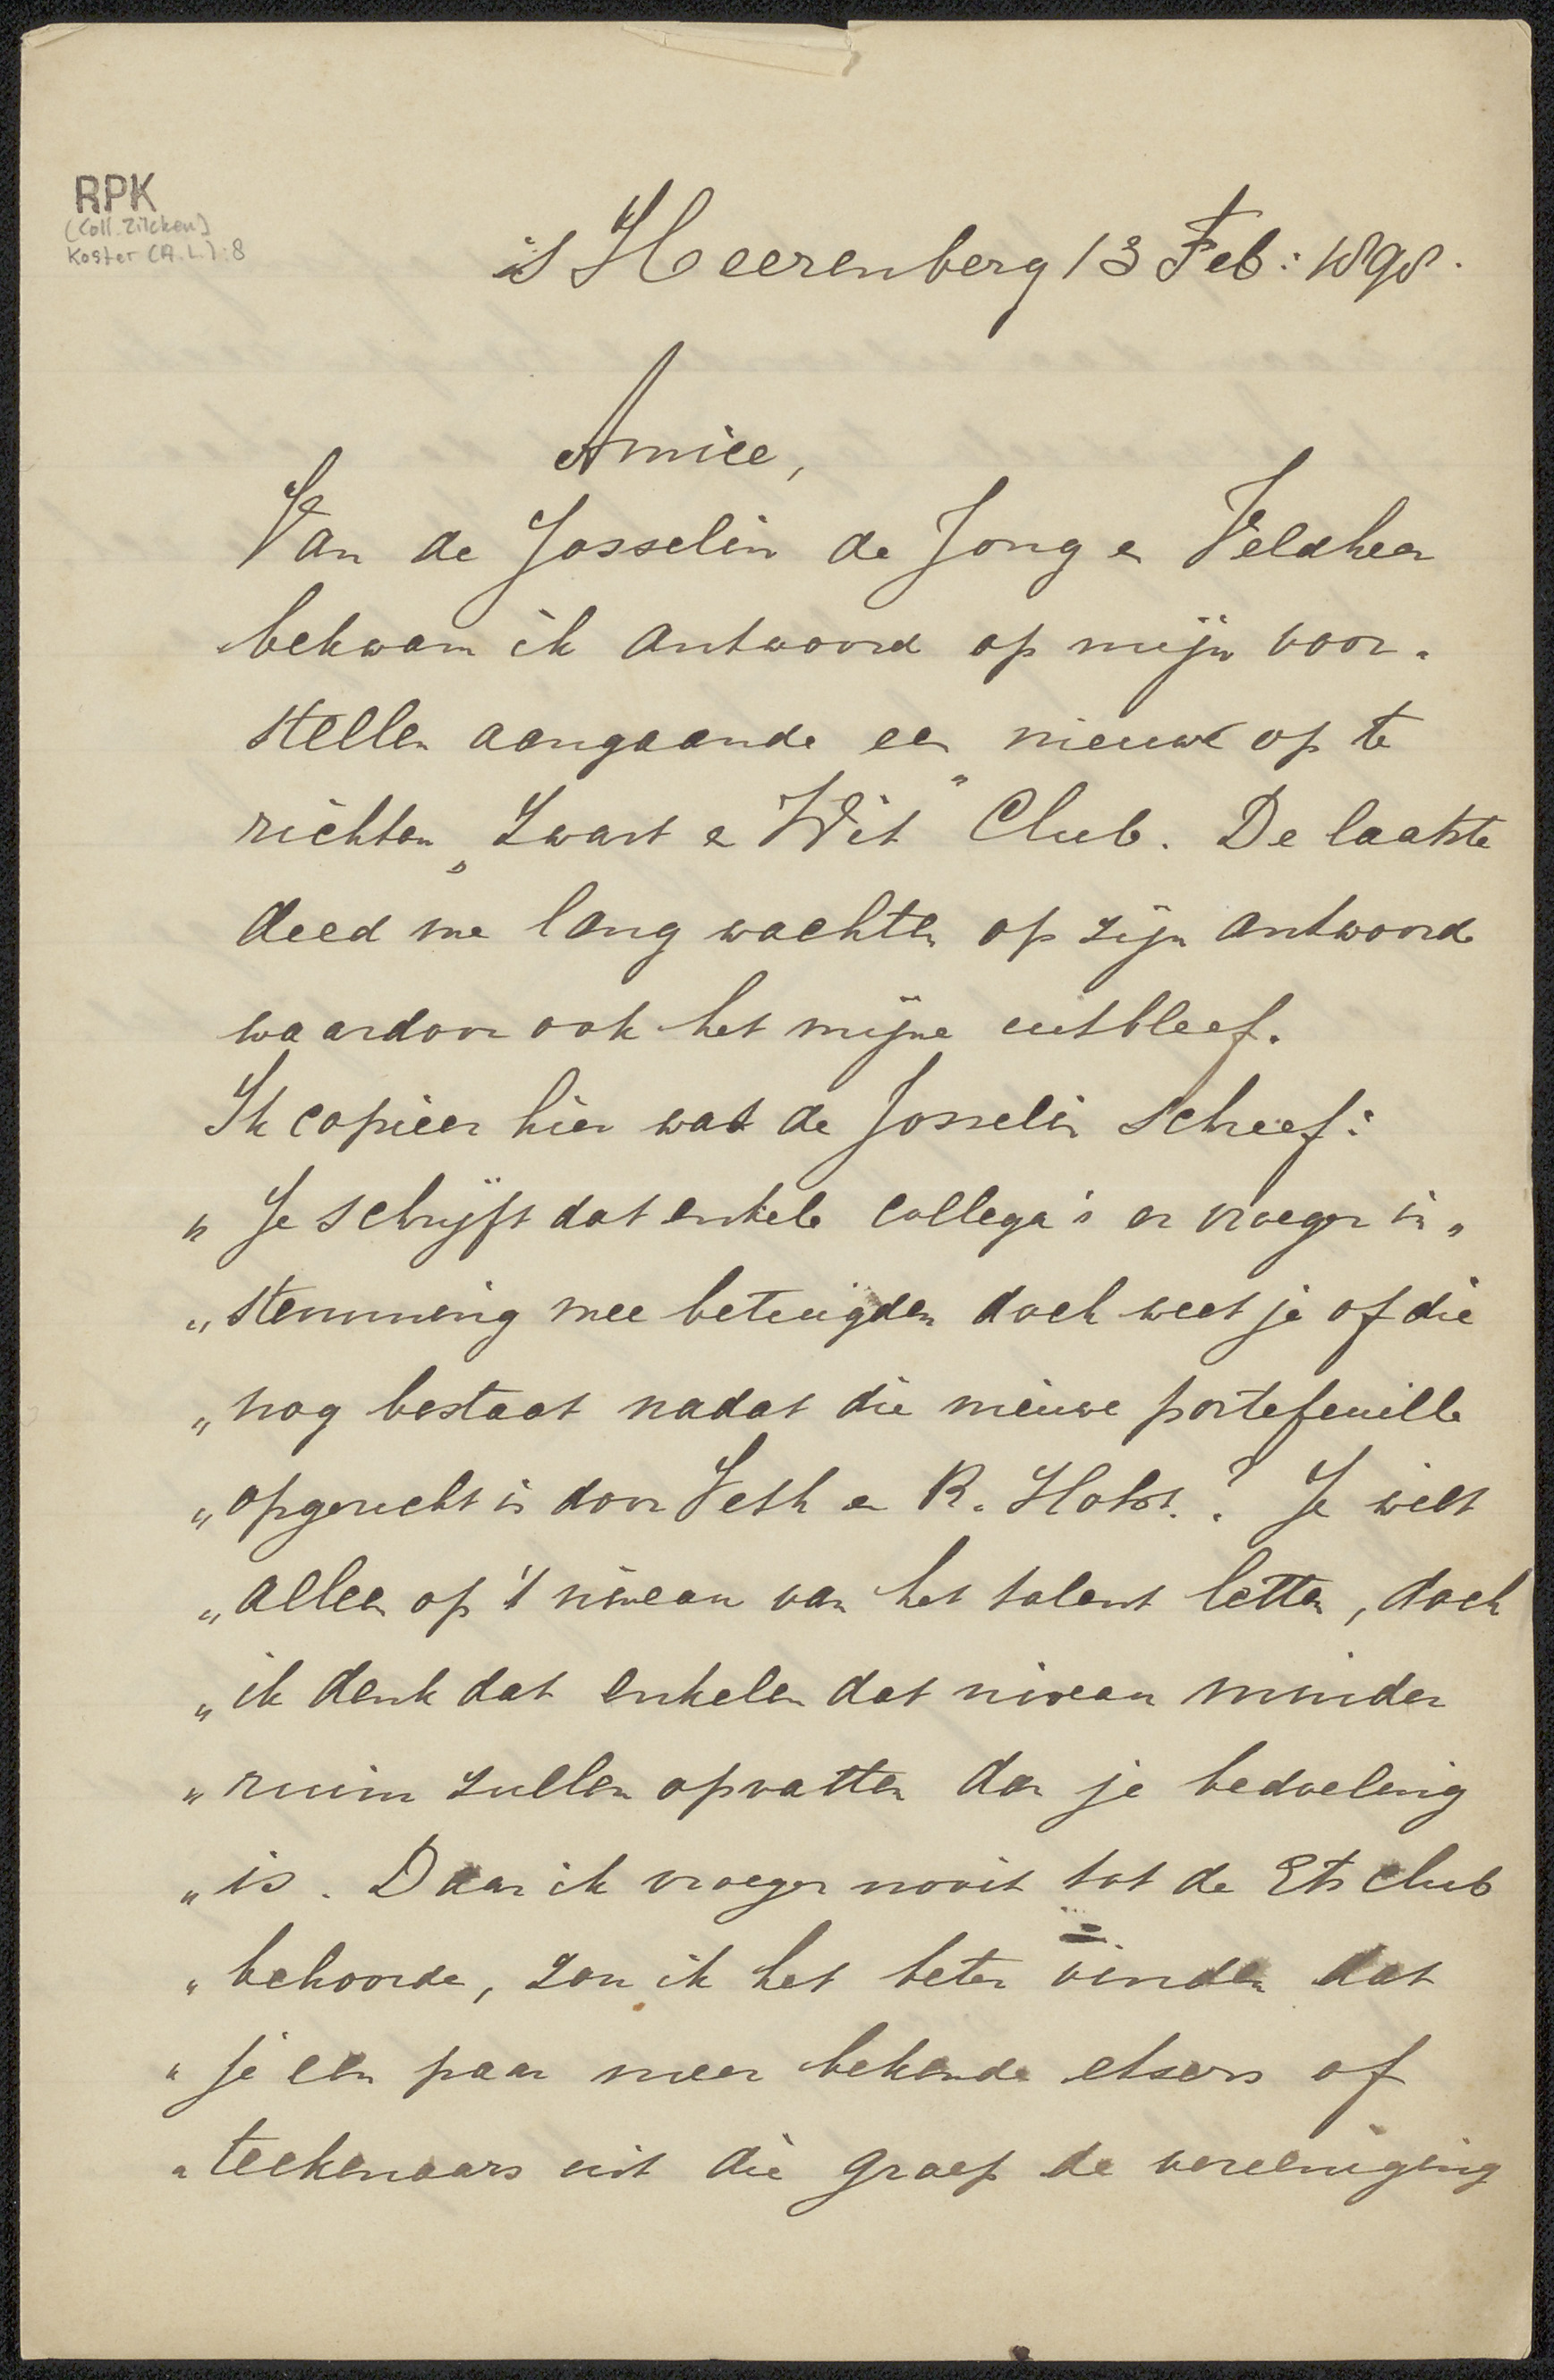 RPK
(Coll. Zilcken)
Koster (A.L.): 8
's Heerenberg 13 Feb: 1898.
Amice,
Van de Josselin de Jong en Veldheer
bekwam ik antwoord op mijn voor-
stellen aangaande een nieuwe op te
richten „Zwart en Wit" Club. De laatste
deed me lang wachten op zijn antwoord
waardoor ook het mijne uitbleef.
Ik copieer hier wat de Josselin schreef:
„Je schrijft dat enkele collega's er vroeger in„
„stemming mee betuigden doch weet je of die
„nog bestaat nadat die nieuwe portefeuille
„opgericht is door Veth en R. Holst.? Je wilt
„alleen op 't niveau van het talent letten, doch
„ik denk dat enkelen dat niveau minder
„ruim zullen opvatten dan je bedoeling
„is. Daar ik vroeger nooit tot de Etsclub
„behoorde, zou ik het beter vinden dat
„je een paar meer bekende etsers of
„teekenaars uit die groep de vereeniging